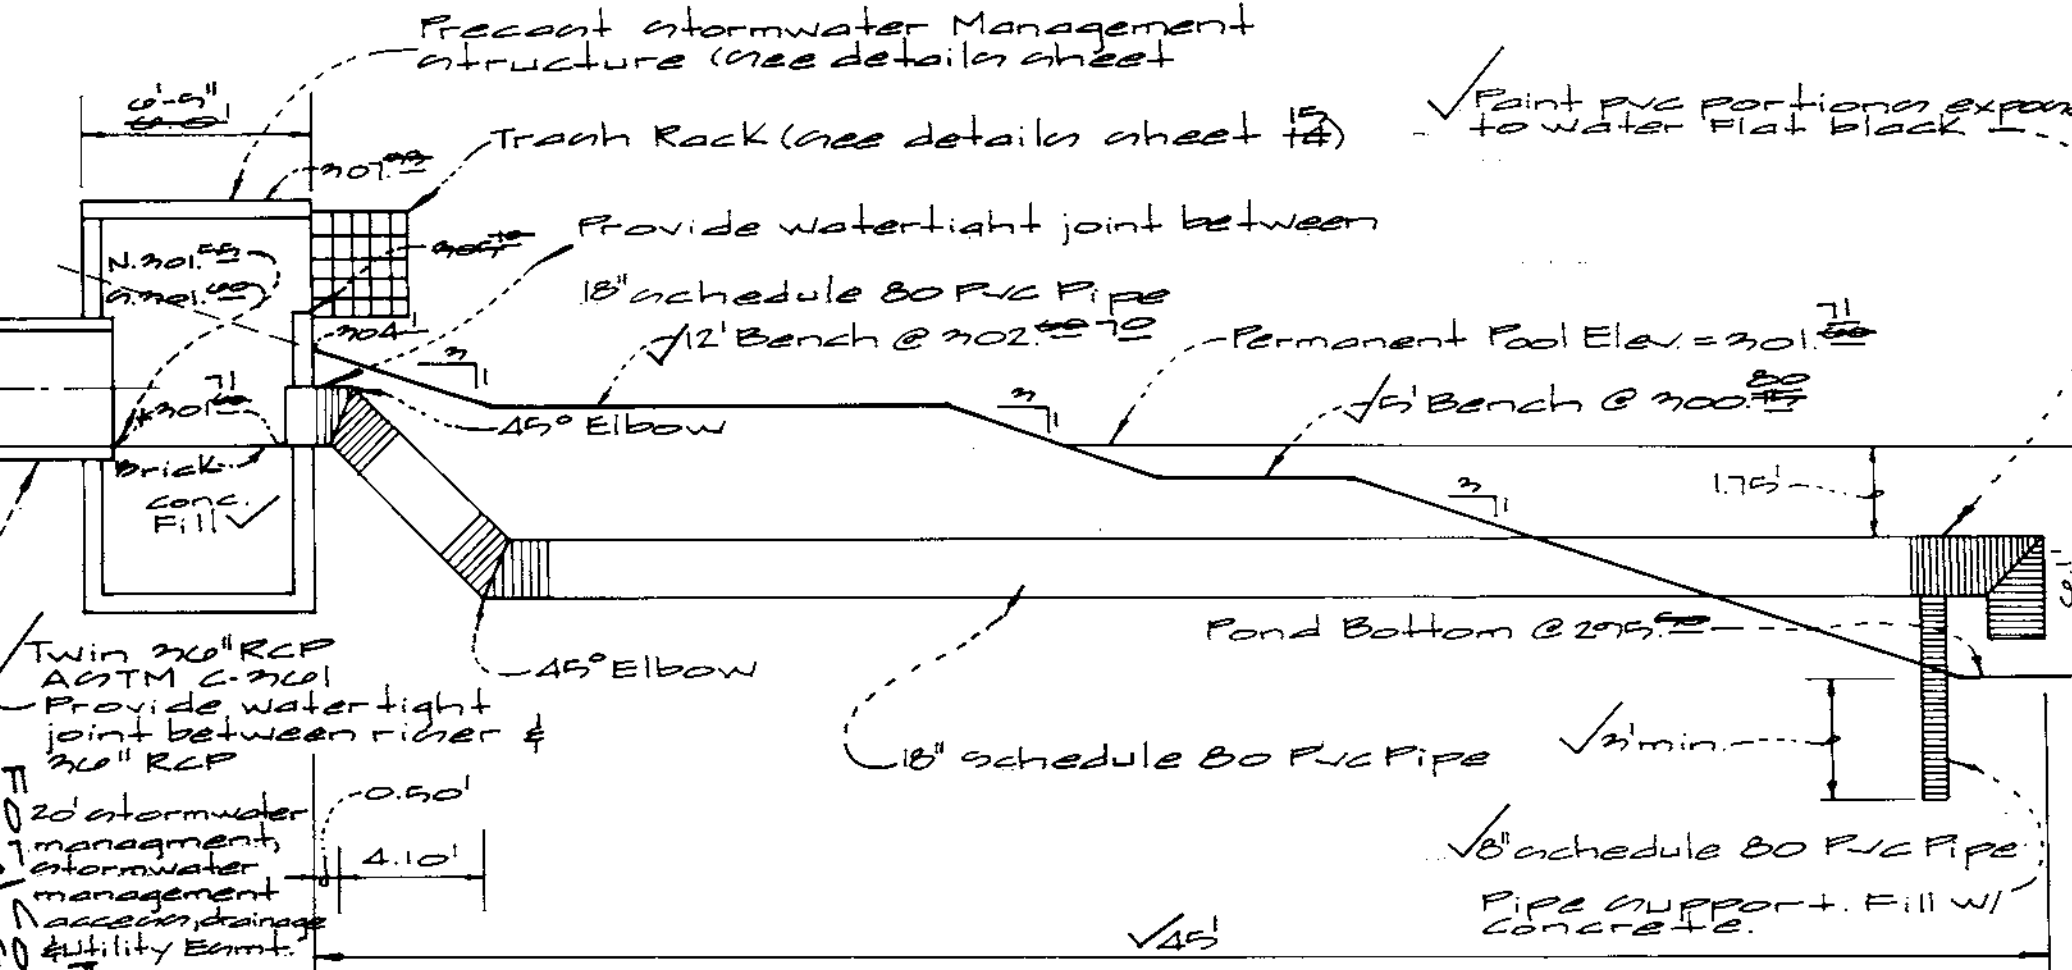 Precast stormwater Management
structure (see details sheet
6'-5"
6.0'
Trash Rack (see details sheet 15 14)
✓ Paint pvc portions expos
to water Flat black
307.
305.
Provide watertight joint between
18" schedule 80 Pvc Pipe
N.301.55
S.301.
304'
3
1
✓12' Bench @ 302. 70
Permanent Pool Elev. = 301. 71
✓5' Bench @ 300. 80
3
1
301. 71
45° Elbow
Brick
conc.
Fill ✓
3
1
1.75'
Pond Bottom @ 295.
45° Elbow
Twin 36" RCP
ASTM C-361
Provide watertight
joint between riser &
36" RCP
18" schedule 80 Pvc Pipe
✓3' min.
0.50'
4.10'
20' stormwater
managment,
stormwater
management
access, drainage
& Utility Esmt.
✓8" schedule 80 Pvc Pipe
Pipe support. Fill w/
concrete.
✓45'